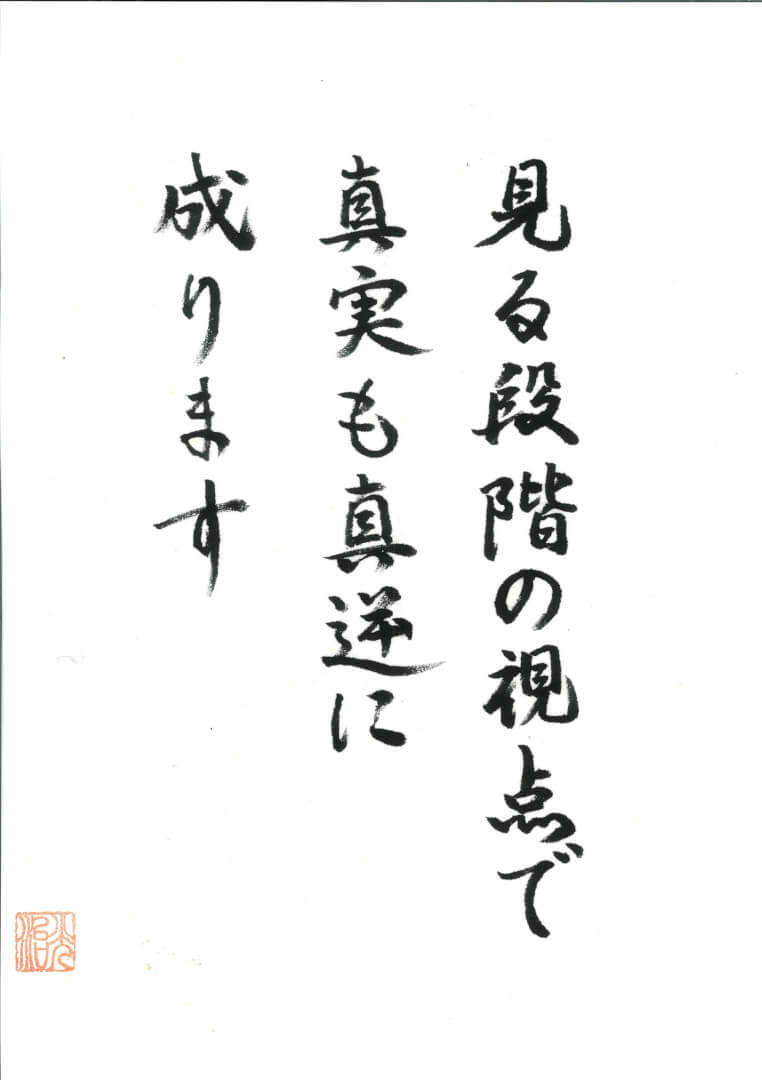 見る段階の視点で
真実も真逆に
成ります